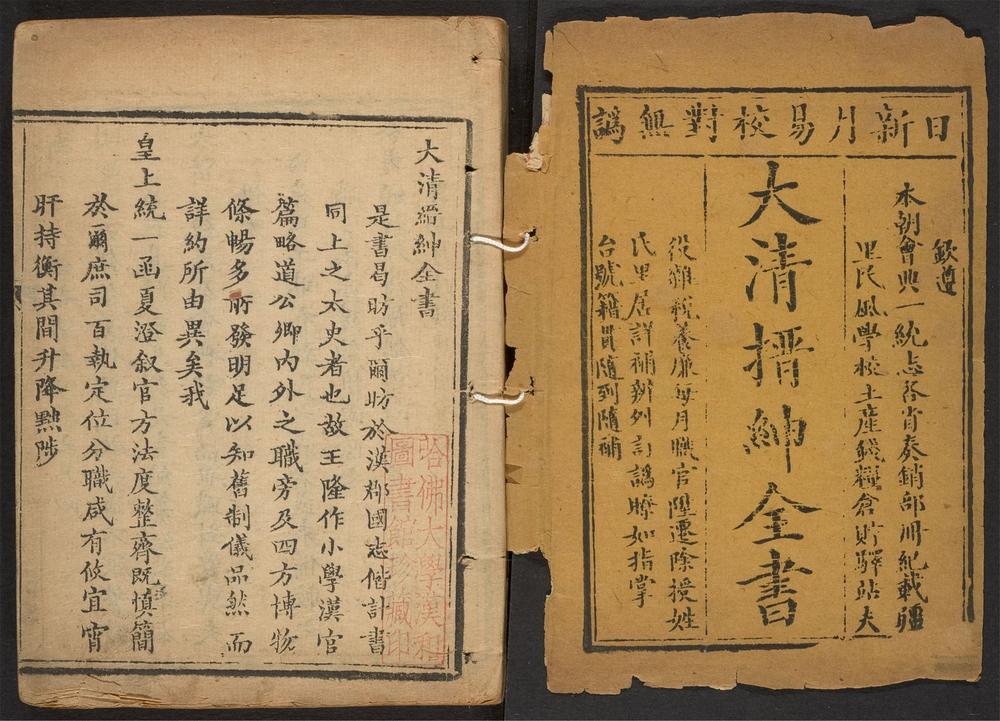 日新月易校對無譌
欽遵
本朝會典一統志各省奏銷部冊紀載疆
里民風學校土產錢糧倉貯驛站夫
大清搢紳全書
役雜稅養廉每月職官陞遷除授姓
氏里居詳補辨列訂譌瞭如指掌
台號籍貫隨到隨補
大清縉紳全書
是書曷昉乎爾昉於漢郡國志偕計書
同上之太史者也故王隆作小學漢官
篇略道公卿內外之職旁及四方博物
條暢多所發明足以知舊制儀品然而
詳約所由異矣我
皇上統一函夏澄叙官方法度整齊既慎簡
於爾庶司百執定位分職咸有攸宜宵
肝持衡其間升降黜陟
哈佛大學漢和
圖書館珍藏印